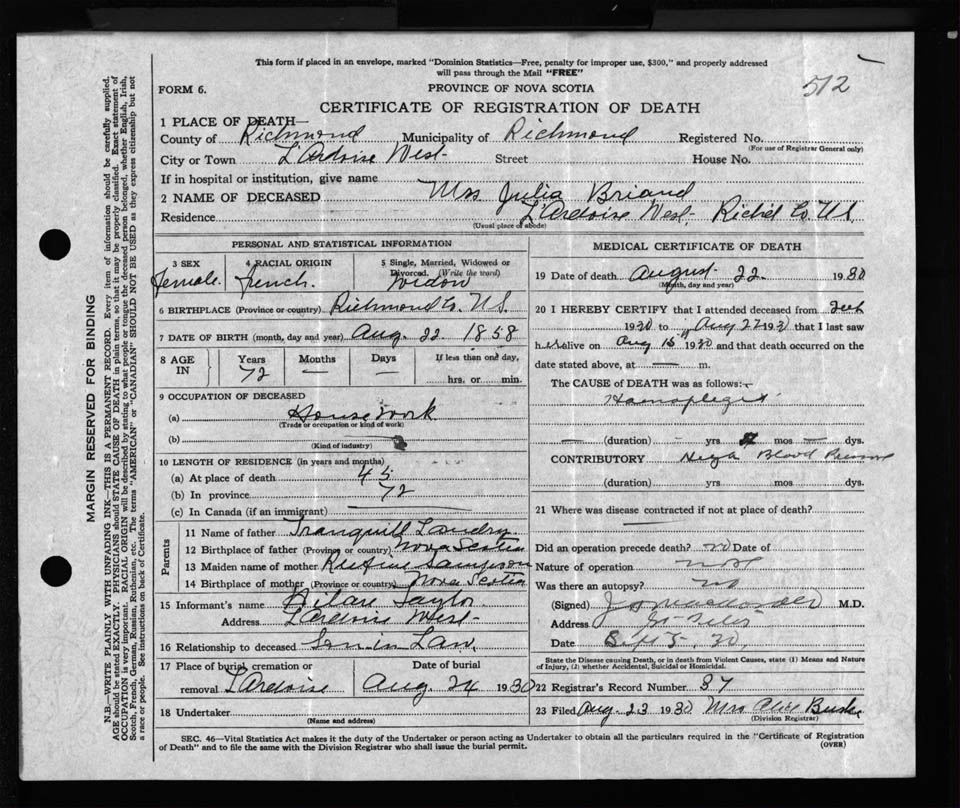 This form if placed in an envelope, marked "Dominion Statistics—Free, penalty for improper use, $300," and properly addressed
will pass through the Mail "FREE"
512
FORM 6.
PROVINCE OF NOVA SCOTIA
CERTIFICATE OF REGISTRATION OF DEATH
1 PLACE OF DEATH—
County of Richmond Municipality of Richmond Registered No.
(For use of Registrar General only)
City or Town L'Ardoise West Street House No.
If in hospital or institution, give name
2 NAME OF DECEASED Mrs Julia Briand
Residence L'Ardoise West Richd Co. N.S.
(Usual place of abode)
PERSONAL AND STATISTICAL INFORMATION
3 SEX 4 RACIAL ORIGIN 5 Single, Married, Widowed or
Divorced. (Write the word)
Female. French. Widow
6 BIRTHPLACE (Province or country) Richmond Co. N.S.
7 DATE OF BIRTH (month, day and year) Aug. 22 1858
8 AGE IN Years Months Days If less than one day,
72 — — hrs. or min.
9 OCCUPATION OF DECEASED
(a) House Work
(Trade or occupation or kind of work)
(b)
(Kind of industry)
10 LENGTH OF RESIDENCE (in years and months)
(a) At place of death 45
(b) In province 72
(c) In Canada (if an immigrant)
Parents
11 Name of father Tranquill Landry
12 Birthplace of father (Province or country) Nova Scotia
13 Maiden name of mother Sampson
14 Birthplace of mother (Province or country) Nova Scotia
15 Informant's name Hilare Taylor
Address L'Ardoise West
16 Relationship to deceased Son in Law.
17 Place of burial, cremation or Date of burial
removal L'Ardoise Aug. 24 1930
18 Undertaker
(Name and address)
MEDICAL CERTIFICATE OF DEATH
19 Date of death August 22 1930
(Month, day and year)
20 I HEREBY CERTIFY that I attended deceased from
1930 to Aug 22 1930 that I last saw
her alive on Aug 15 1930 and that death occurred on the
date stated above, at — m.
The CAUSE OF DEATH was as follows:—
— (duration) — yrs mos — dys.
CONTRIBUTORY High Blood Pressure
(duration) yrs. mos. dys.
21 Where was disease contracted if not at place of death?
Did an operation precede death? no Date of
Nature of operation none
Was there an autopsy? no
(Signed) M.D.
Address St. Peters
Date Sept 5, 30
State the Disease causing Death, or in death from Violent Causes, state (1) Means and Nature
of Injury, (2) whether Accidental, Suicidal or Homicidal.
22 Registrar's Record Number 37
23 Filed Aug. 23 1930 Mrs Alice
(Division Registrar)
SEC. 46—Vital Statistics Act makes it the duty of the Undertaker or person acting as Undertaker to obtain all the particulars required in the "Certificate of Registration
of Death" and to file the same with the Division Registrar who shall issue the burial permit.
(OVER)
MARGIN RESERVED FOR BINDING
N.B.—WRITE PLAINLY WITH UNFADING INK—THIS IS A PERMANENT RECORD. Every item of information should be carefully supplied.
AGE should be stated EXACTLY. PHYSICIANS should STATE CAUSE OF DEATH in plain terms, so that it may be properly classified. Exact statement of
OCCUPATION is very important. RACIAL ORIGIN will be described by stating to what people or tongue the deceased person belonged, whether English, Irish,
Scotch, French, German, Russian, Ruthenian, etc. The terms "AMERICAN" or "CANADIAN" SHOULD NOT BE USED as they express citizenship but not
a race or people. See instructions on back of Certificate.